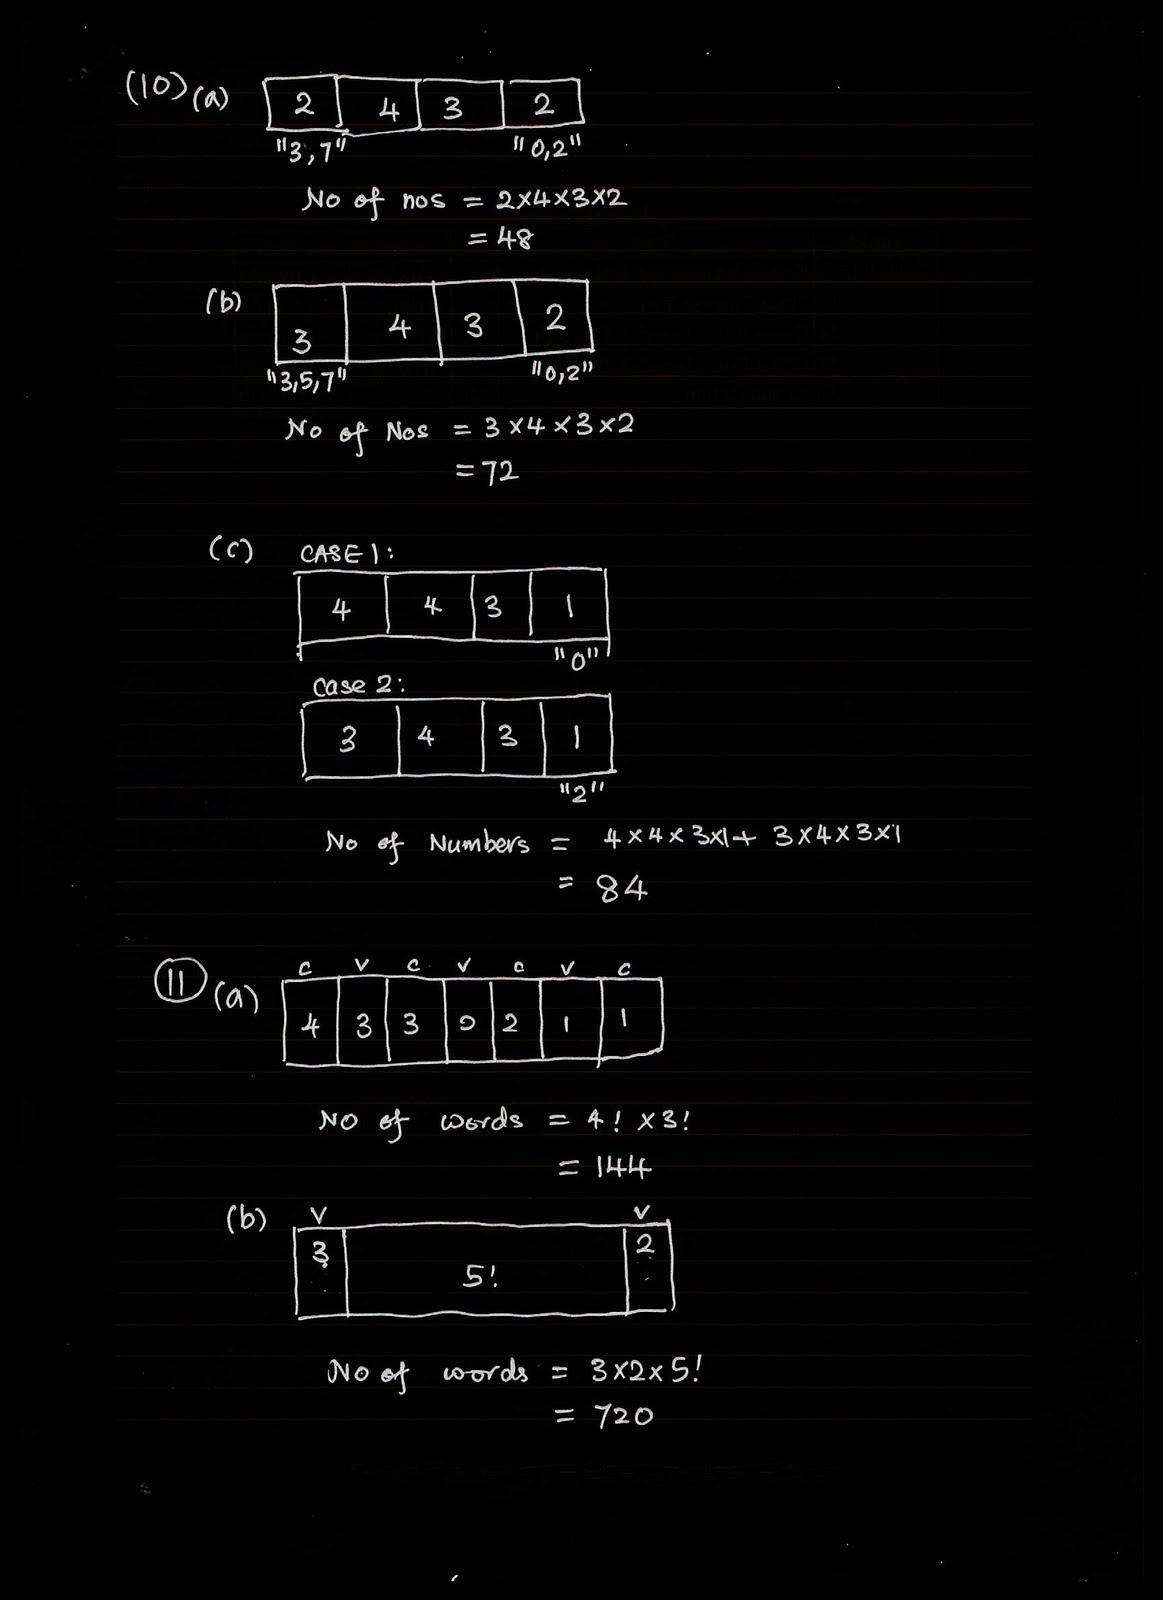 (10) (a) 2 4 3 2
"3,7" "0,2"
No of nos = 2×4×3×2
= 48
(b) 3 4 3 2
"3,5,7" "0,2"
No of Nos = 3×4×3×2
= 72
(c) CASE 1:
4 4 3 1
"0"
Case 2:
3 4 3 1
"2"
No of Numbers = 4×4×3×1+ 3×4×3×1
= 84
C V C V C V C
11 (a) 4 3 3 2 2 1 1
No of words = 4! ×3!
= 144
(b) V V
3 5! 2
No of words = 3×2×5!
= 720